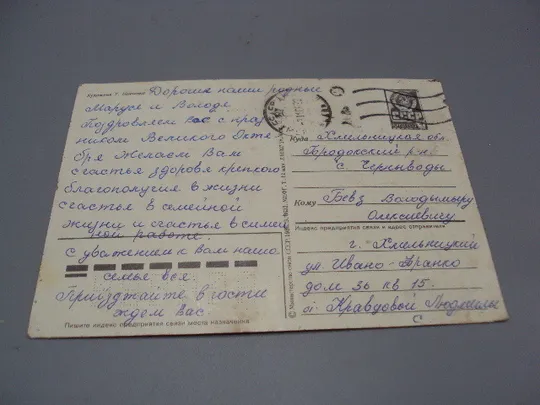 Художник
Дорогие наши родные
Маруся и Володя
Поздровляем Вас с праз
ником Великого Октя
бря Желаем Вам
счастья здоровя крепкого
благополучия в жизни
счастье в семейной
жизни и счастья в
ной работе
с уважением к Вам наша
семья вся.
Приїзджайте в гости
ждем вас.
Пишите индекс предприятия связи места назначения
СССР
Куда Хмельницкая обл.
Городокский р-не
с.
Кому Бевз Володымыру
Олексіевичу
Индекс предприятия связи и адрес отправителя
г. Хмельницкий
ул. Ивано-Франко
дом 36 кв 15.
от Кравцовой Людмилы
С
© Министерство связи СССР